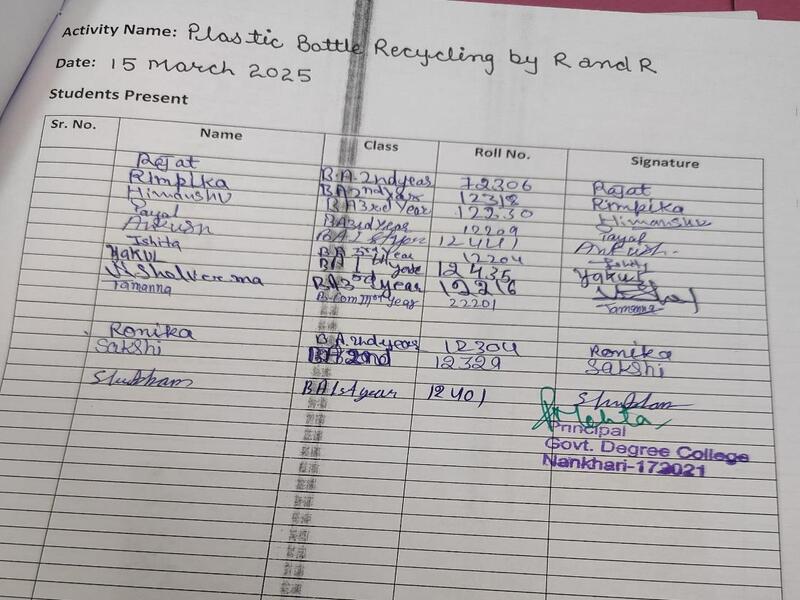 Activity Name: Plastic Bottle Recycling by R and R
Date: 15 March 2025
Students Present
Sr. No. Name Class Roll No. Signature
Rajat B.A. 2nd year 12306 Rajat
Rimpika BA 2nd year 12318 Rimpika
Himanshu BA 3rd Year 12230 Himanshu
Payal BA 3rd Year 12209 Payal
Ankush BA 1st year 12441 Ankush
Ishita BA 3rd Year 12204 Ishita
Yakul BA 12435 Yakul
Vishal verma BA 3rd year 12216 Vishal
Tamanna B.Com Year 22201 Tamanna
Ronika B.A. 2nd year 12304 Ronika
Sakshi BA 2nd 12329 Sakshi
Shubham BA 1st year 12401 Shubham
Mehta
Principal
Govt. Degree College
Nankhari-172021